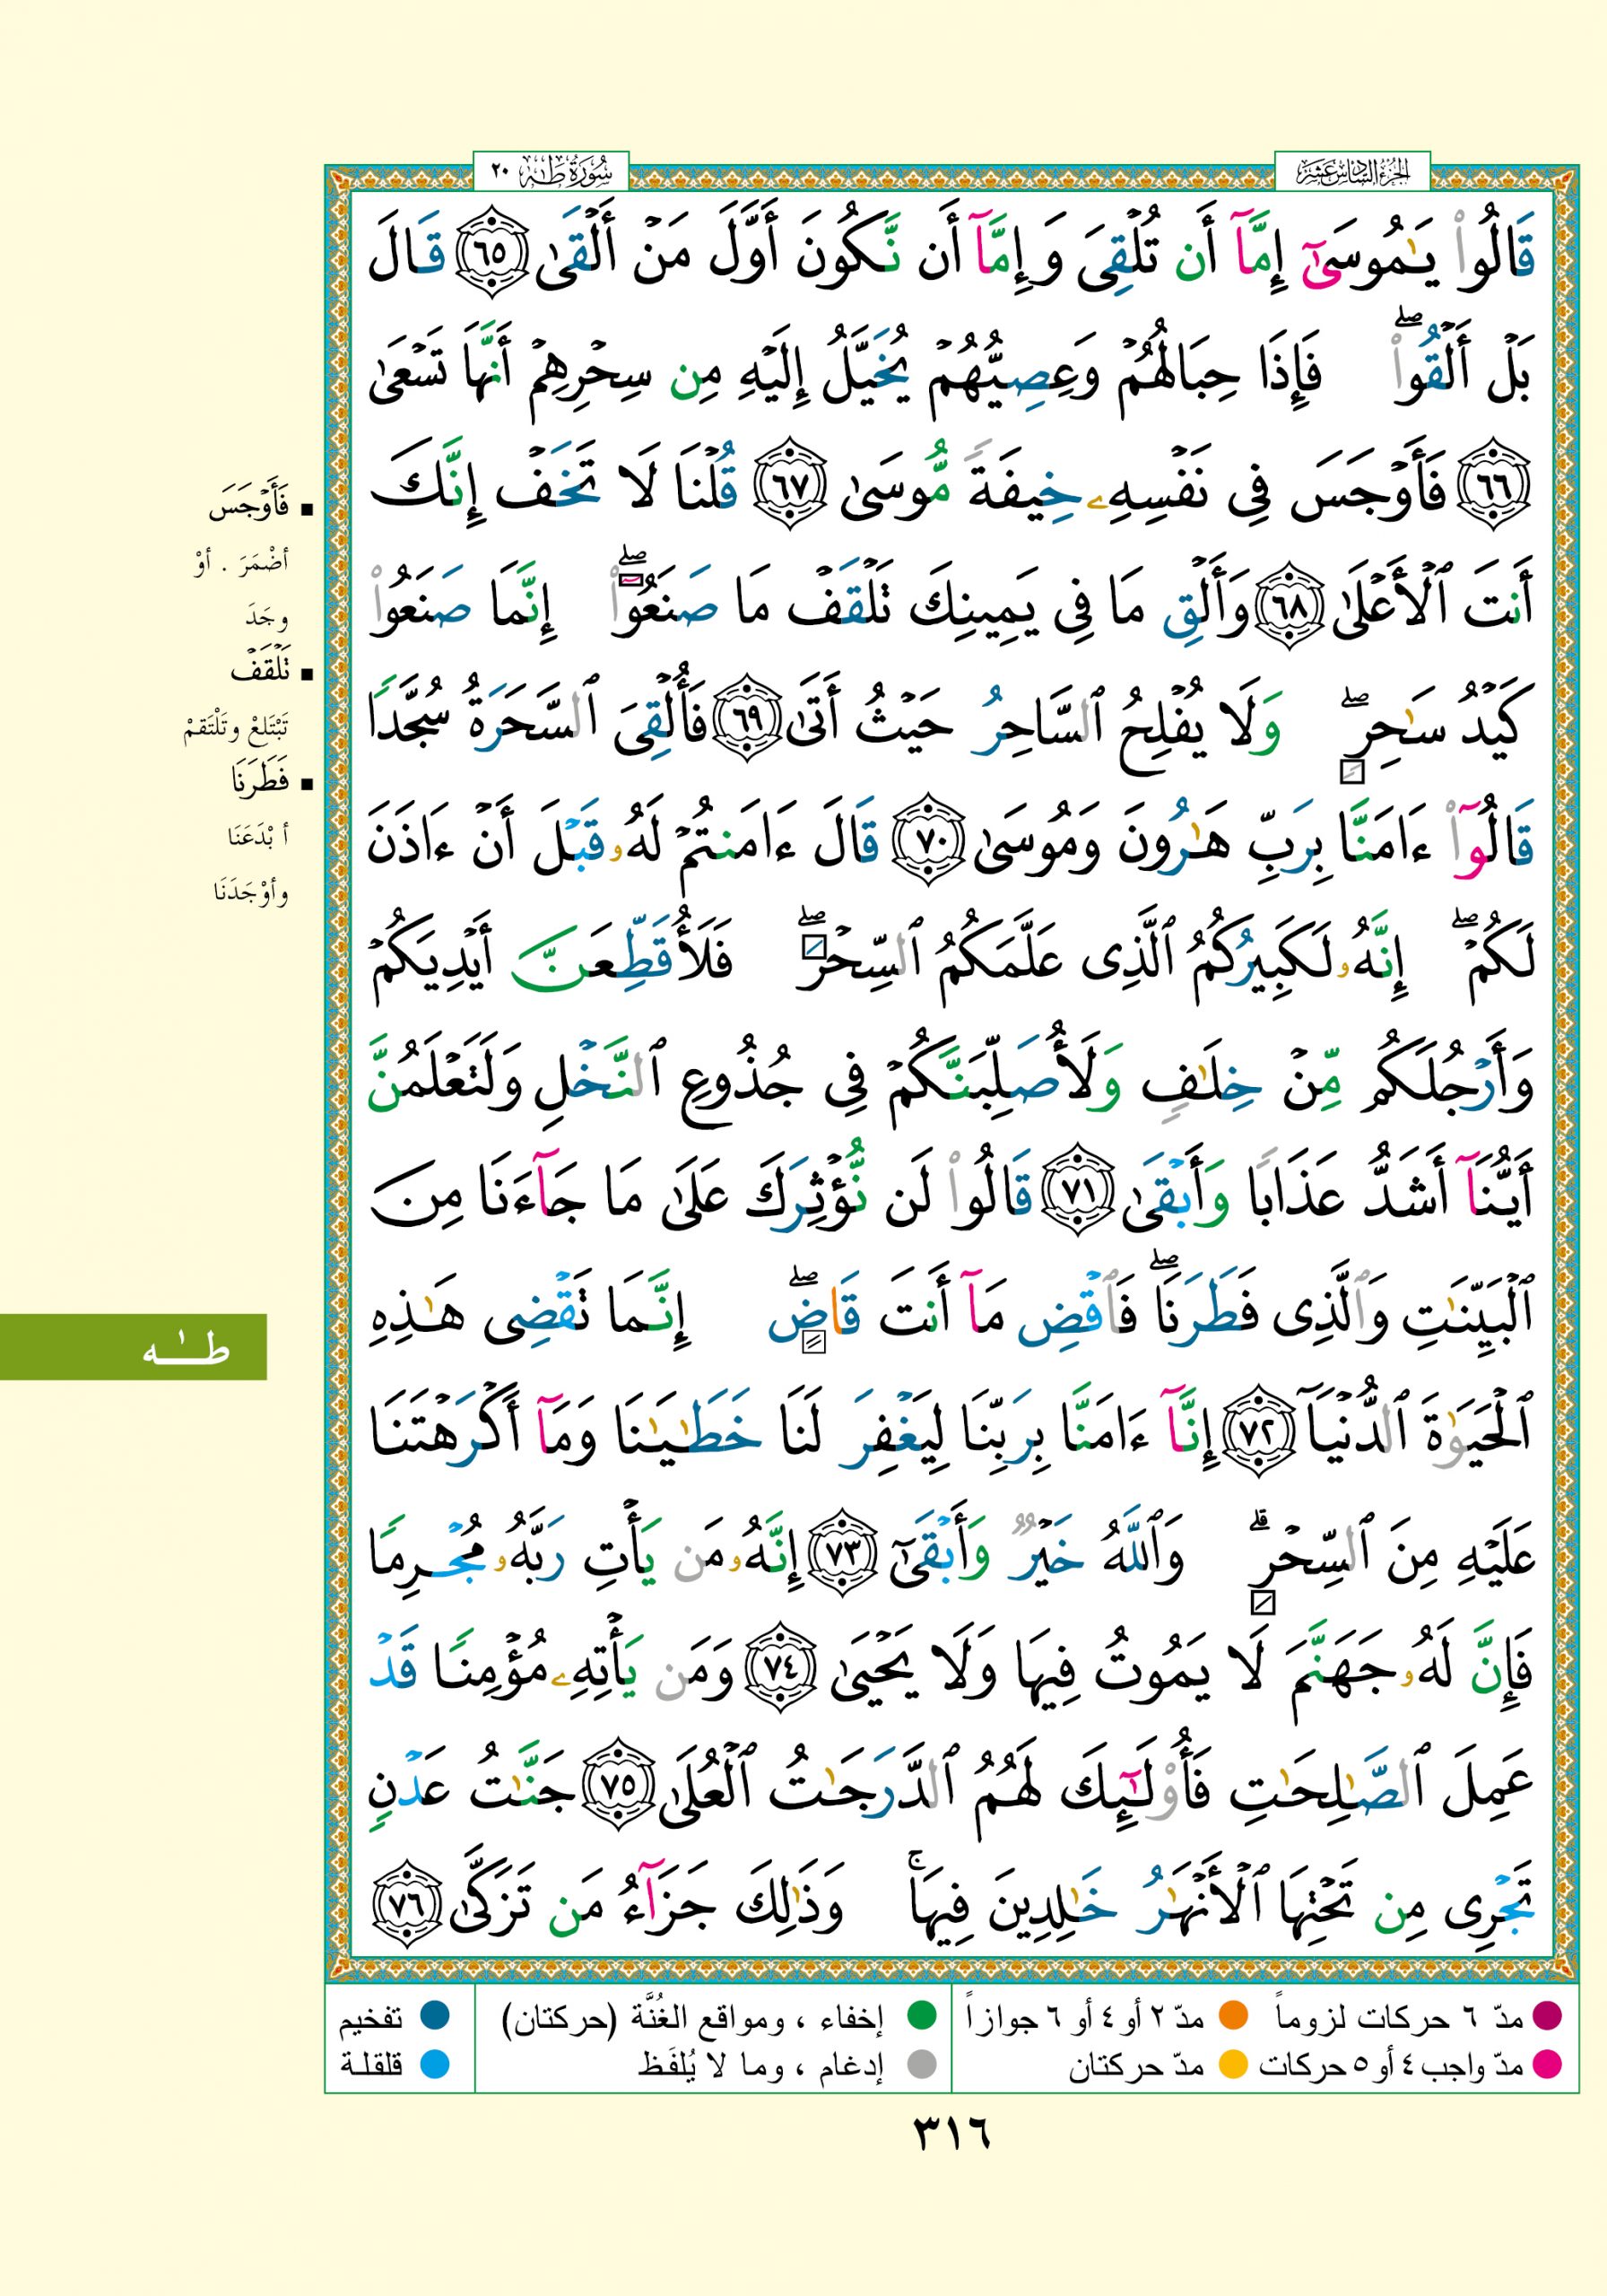 الجزء السادس عشر
سورة طه ٢٠
قَالُوا۟ يَـٰمُوسَىٰٓ إِمَّآ أَن تُلْقِىَ وَإِمَّآ أَن نَّكُونَ أَوَّلَ مَنْ أَلْقَىٰ ٦٥ قَالَ
بَلْ أَلْقُوا۟ ۖ فَإِذَا حِبَالُهُمْ وَعِصِيُّهُمْ يُخَيَّلُ إِلَيْهِ مِن سِحْرِهِمْ أَنَّهَا تَسْعَىٰ
٦٦ فَأَوْجَسَ فِى نَفْسِهِۦ خِيفَةً مُّوسَىٰ ٦٧ قُلْنَا لَا تَخَفْ إِنَّكَ
أَنتَ ٱلْأَعْلَىٰ ٦٨ وَأَلْقِ مَا فِى يَمِينِكَ تَلْقَفْ مَا صَنَعُوٓا۟ ۖ إِنَّمَا صَنَعُوا۟
كَيْدُ سَـٰحِرٍ ۖ وَلَا يُفْلِحُ ٱلسَّاحِرُ حَيْثُ أَتَىٰ ٦٩ فَأُلْقِىَ ٱلسَّحَرَةُ سُجَّدًا
قَالُوٓا۟ ءَامَنَّا بِرَبِّ هَـٰرُونَ وَمُوسَىٰ ٧٠ قَالَ ءَامَنتُمْ لَهُۥ قَبْلَ أَنْ ءَاذَنَ
لَكُمْ ۖ إِنَّهُۥ لَكَبِيرُكُمُ ٱلَّذِى عَلَّمَكُمُ ٱلسِّحْرَ ۖ فَلَأُقَطِّعَنَّ أَيْدِيَكُمْ
وَأَرْجُلَكُم مِّنْ خِلَـٰفٍ وَلَأُصَلِّبَنَّكُمْ فِى جُذُوعِ ٱلنَّخْلِ وَلَتَعْلَمُنَّ
أَيُّنَآ أَشَدُّ عَذَابًا وَأَبْقَىٰ ٧١ قَالُوا۟ لَن نُّؤْثِرَكَ عَلَىٰ مَا جَآءَنَا مِنَ
ٱلْبَيِّنَـٰتِ وَٱلَّذِى فَطَرَنَا ۖ فَٱقْضِ مَآ أَنتَ قَاضٍ ۖ إِنَّمَا تَقْضِى هَـٰذِهِ
ٱلْحَيَوٰةَ ٱلدُّنْيَآ ٧٢ إِنَّآ ءَامَنَّا بِرَبِّنَا لِيَغْفِرَ لَنَا خَطَـٰيَـٰنَا وَمَآ أَكْرَهْتَنَا
عَلَيْهِ مِنَ ٱلسِّحْرِ ۗ وَٱللَّهُ خَيْرٌ وَأَبْقَىٰٓ ٧٣ إِنَّهُۥ مَن يَأْتِ رَبَّهُۥ مُجْرِمًا
فَإِنَّ لَهُۥ جَهَنَّمَ لَا يَمُوتُ فِيهَا وَلَا يَحْيَىٰ ٧٤ وَمَن يَأْتِهِۦ مُؤْمِنًا قَدْ
عَمِلَ ٱلصَّـٰلِحَـٰتِ فَأُو۟لَـٰٓئِكَ لَهُمُ ٱلدَّرَجَـٰتُ ٱلْعُلَىٰ ٧٥ جَنَّـٰتُ عَدْنٍ
تَجْرِى مِن تَحْتِهَا ٱلْأَنْهَـٰرُ خَـٰلِدِينَ فِيهَا ۚ وَذَٰلِكَ جَزَآءُ مَن تَزَكَّىٰ ٧٦
▪ فَأَوْجَسَ
أضْمَرَ . أوْ
وجَدَ
▪ تَلْقَفْ
تَبْتَلعْ وتَلْتَقمْ
▪ فَطَرَنَا
أ بْدَعَنَا
وأوْجَدَنَا
طـٰـه
مدّ ٦ حركات لزوماً مدّ ٢ أو ٤ أو ٦ جوازاً إخفاء ، ومواقع الغُنَّة (حركتان) تفخيم
مدّ واجب ٤ أو ٥ حركات مدّ حركتان إدغام ، وما لا يُلفَظ قلقلة
٣١٦